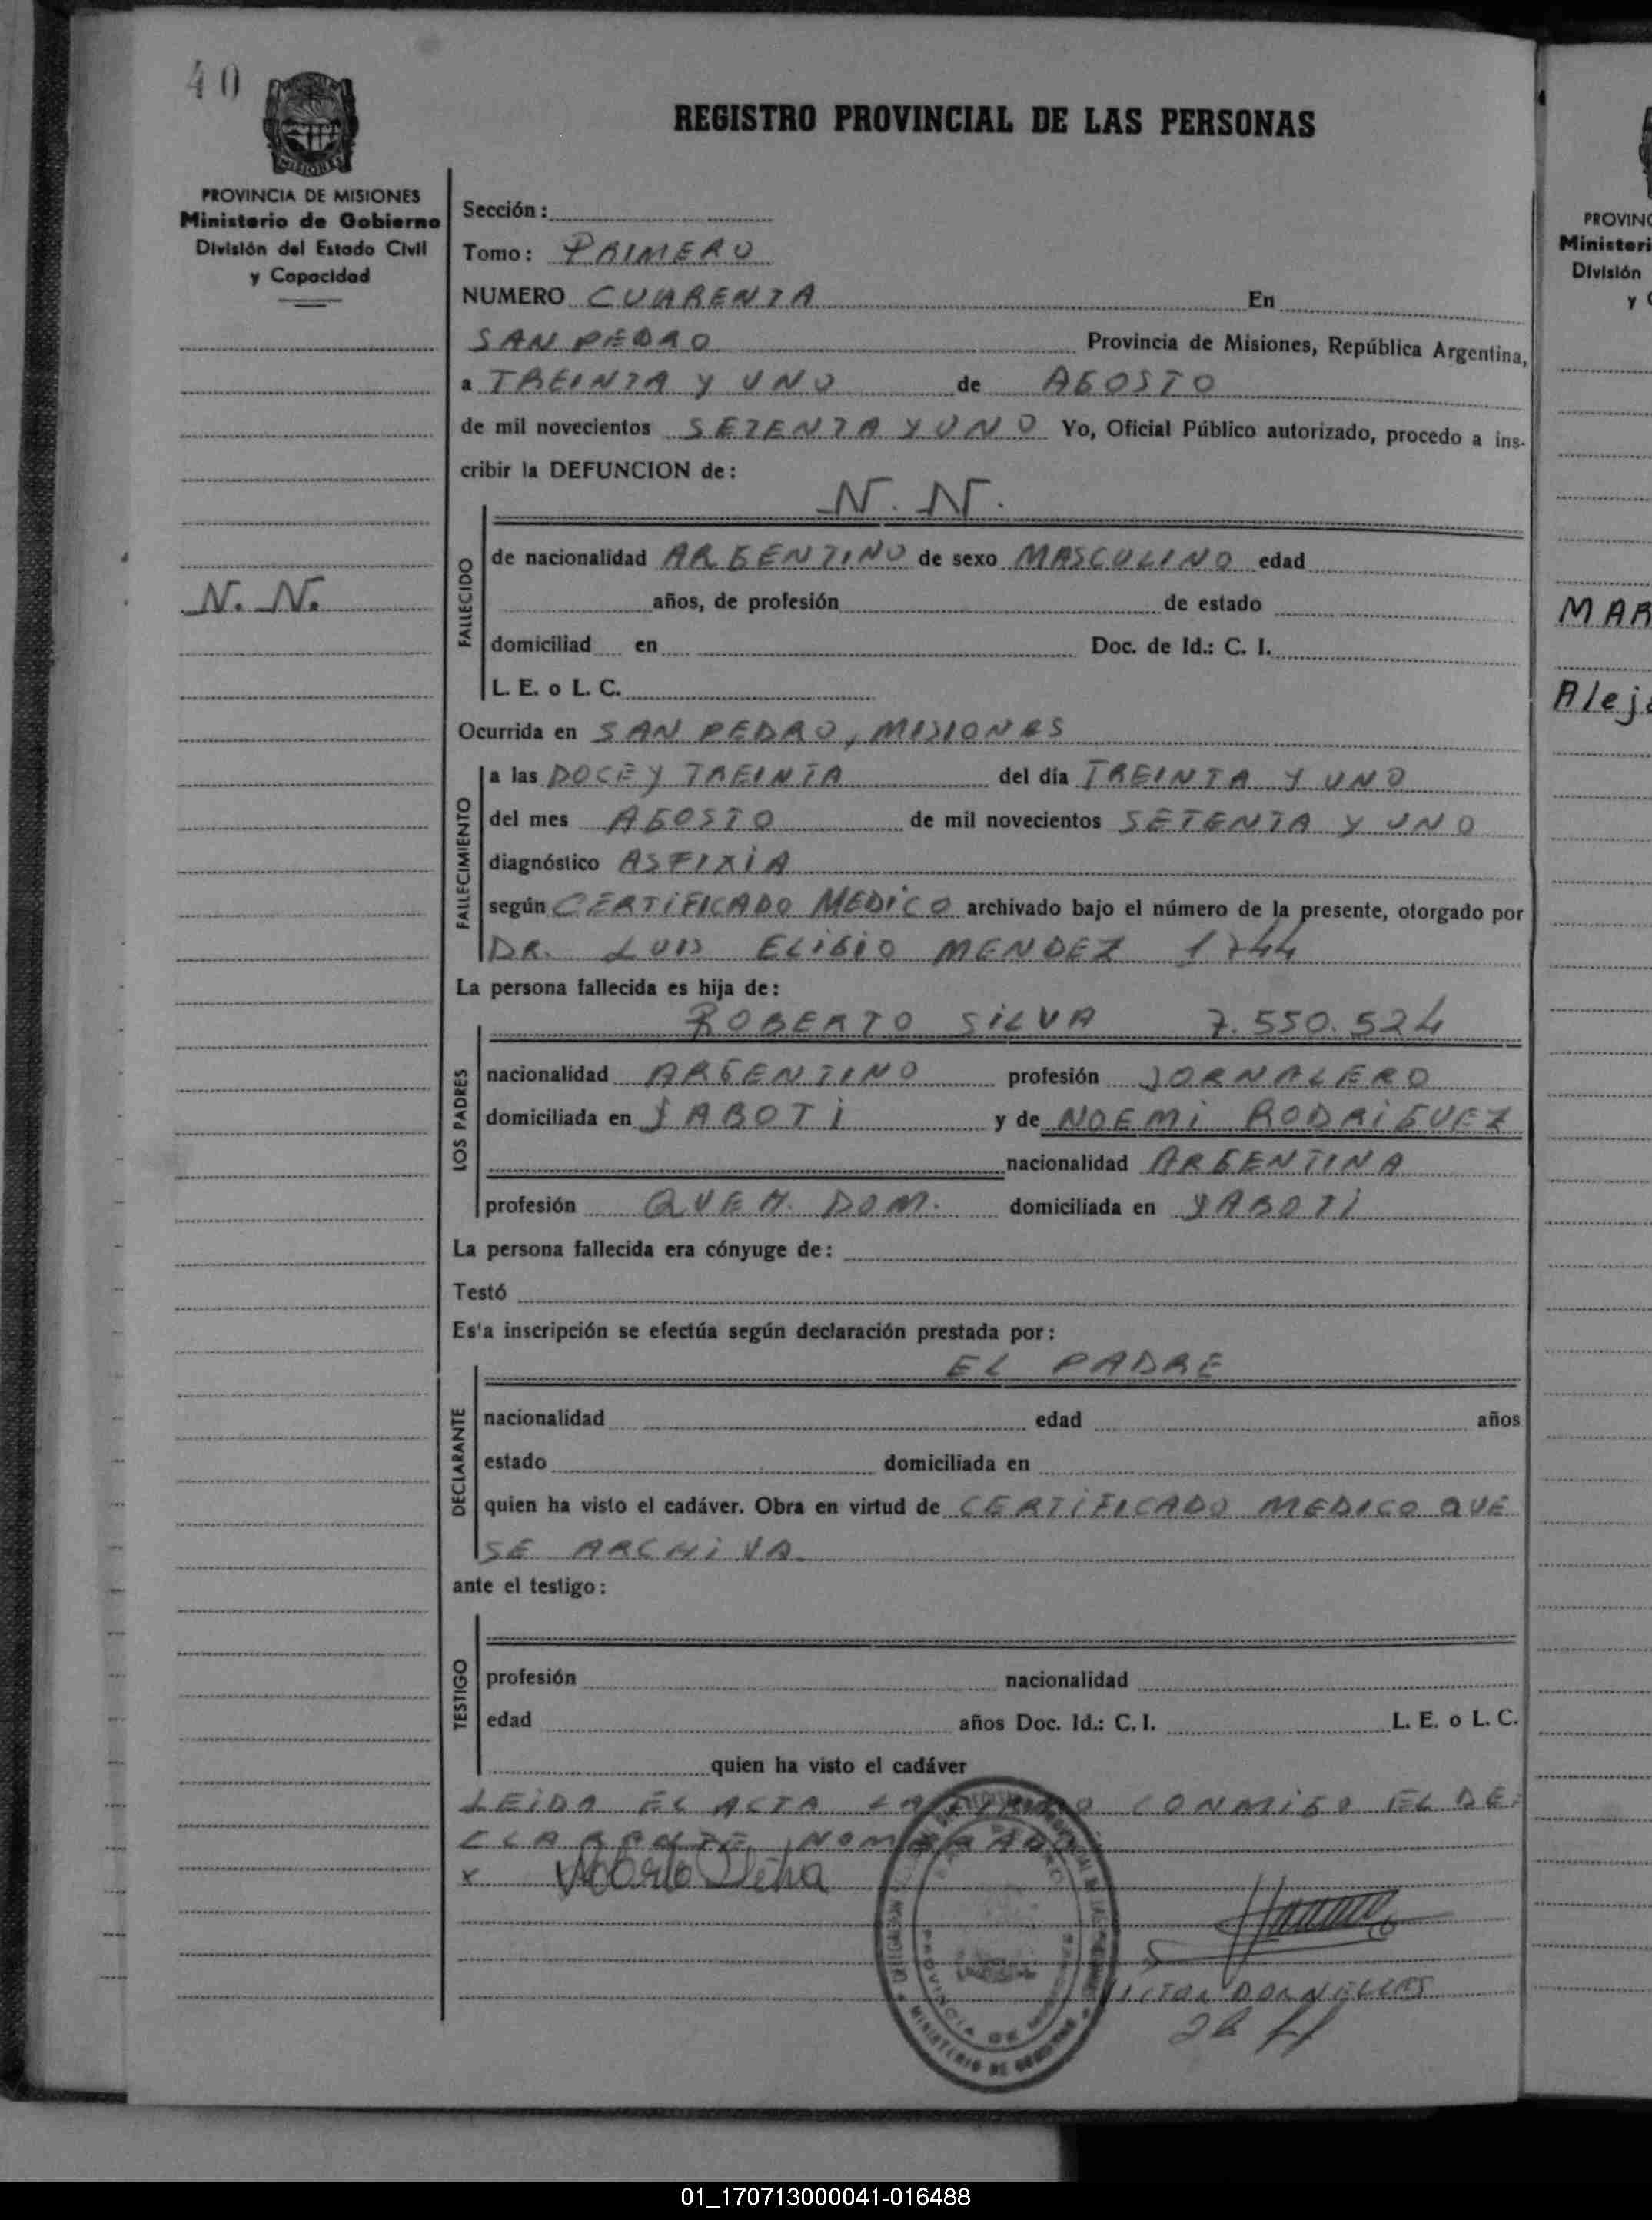 40
REGISTRO PROVINCIAL DE LAS PERSONAS
MISIONES
PROVINCIA DE MISIONES
Ministerio de Gobierno
División del Estado Civil
y Capacidad
N. N.
Sección:
Tomo: PRIMERO
NUMERO CUARENTA En
SAN PEDRO Provincia de Misiones, República Argentina,
a TREINTA Y UNO de AGOSTO
de mil novecientos SETENTA Y UNO Yo, Oficial Público autorizado, procedo a ins-
cribir la DEFUNCION de:
N. N.
FALLECIDO
de nacionalidad ARGENTINO de sexo MASCULINO edad
años, de profesión de estado
domiciliad en Doc. de Id.: C. I.
L. E. o L. C.
Ocurrida en SAN PEDRO, MISIONES
FALLECIMIENTO
a las DOCE Y TREINTA del día TREINTA Y UNO
del mes AGOSTO de mil novecientos SETENTA Y UNO
diagnóstico ASFIXIA
según CERTIFICADO MEDICO archivado bajo el número de la presente, otorgado por
DR. LUIS ELIGIO MENDEZ 1744
La persona fallecida es hija de:
LOS PADRES
ROBERTO SILVA 7.550.524
nacionalidad ARGENTINO profesión JORNALERO
domiciliada en YABOTI y de NOEMI RODRIGUEZ
nacionalidad ARGENTINA
profesión QUEH. DOM. domiciliada en YABOTI
La persona fallecida era cónyuge de:
Testó
Es'a inscripción se efectúa según declaración prestada por:
EL PADRE
DECLARANTE
nacionalidad edad años
estado domiciliada en
quien ha visto el cadáver. Obra en virtud de CERTIFICADO MEDICO QUE
SE ARCHIVA
ante el testigo:
TESTIGO
profesión nacionalidad
edad años Doc. Id.: C. I. L. E. o L. C.
quien ha visto el cadáver
LEIDA EL ACTA LA FIRMO CONMIGO EL DE-
CLARANTE NOMBRADO
x Roberto Silva
PROVINCIA DE
MINISTERIO DE GOBIERNO
PROVINC
Ministeri
División
y C
MAR
Alej
01_170713000041-016488